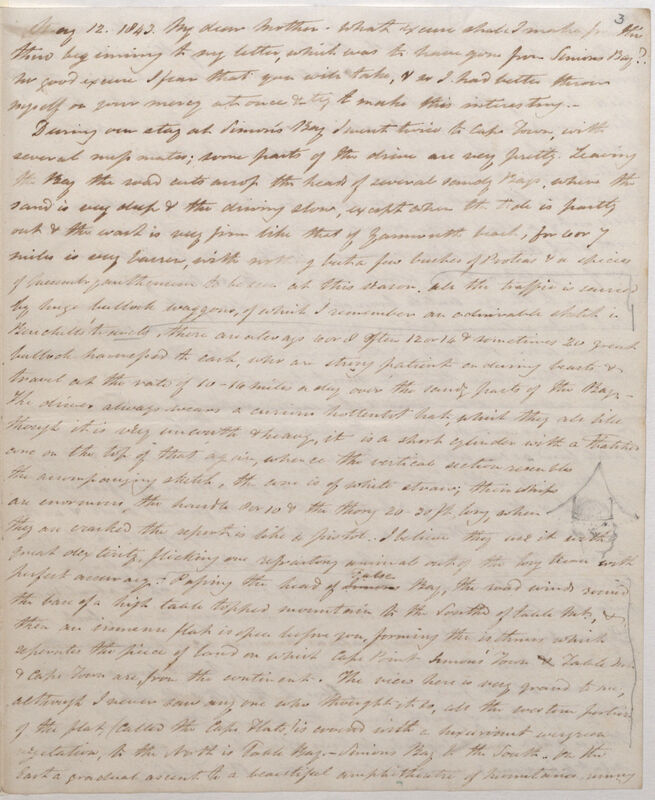 3
May 12. 1843. My dear Mother. What excuse shall I make for the
thin beginning to my letter, which was to have gone from Simons Bay?
no good excuse I fear that you will take, & so I had better throw
myself on your mercy at once & try to make this interesting. -
During our stay at Simon's Bay I went twice to Cape Town, with
several mess mates; some parts of the drive are very pretty. Leaving
the Bay the road cuts across the heads of several sandy Bays, where the
sand is very deep & the driving slow, except when the tide is partly
out & the wash is very firm like that of Yarmouth beach; for 6 or 7
miles is very barren, with nothing but a few bushes of Proteas & a species
of Mesembryanthemum to be seen at this season, all the traffic is carried
by huge bullock waggons, of which I remember an admirable sketch in
Burchells travels, there are always 6 or 8 often 12 or 14 & sometimes 20 great
bullocks harnessed to each, who are strong patient enduring beasts &
travel at the rate of 10-14 miles a day over the sandy parts of the Bays.
The driver always wears a curious hottentot hat, which they all like
though it is very uncouth & heavy, it is a short cylinder with a thatched
cone on the top of that again, whence the vertical section resembles
the accompanying sketch, the cone is of white straw; their whips
are enormous, the handle 8 or 10 & the thong 20-30 ft. long, when
they are cracked the report is like a pistol. I believe they use it with
great dexterity, flicking one refractory animal out of the long team with
perfect accuracy. Passing the head of False Bay, the road winds round
the base of a high table topped mountain to the South of Table Mt., &
then an immense flat is open before you, forming the isthmus which
separates the piece of land on which Cape Point Simons' Town & Table Mt.
& Cape Town are, from the continent. The view here is very grand to me,
although I never saw any one who thought it so, all the western portion
of the flat (called the Cape Flats) is covered with a luxuriant evergreen
vegetation, to the North is Table Bay. - Simons Bay to the South. On the
East a gradual ascent to a beautiful amphitheatre of mountains